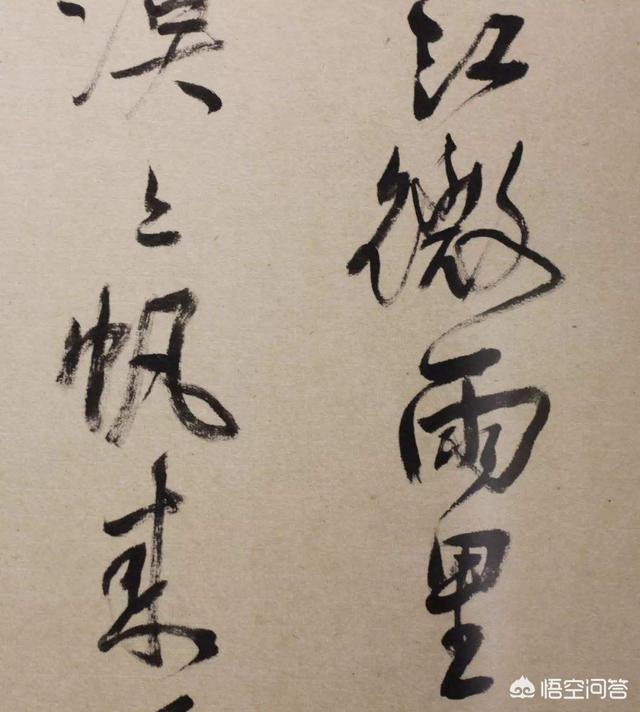 江微雨里
漠〻帆来
悟空问答